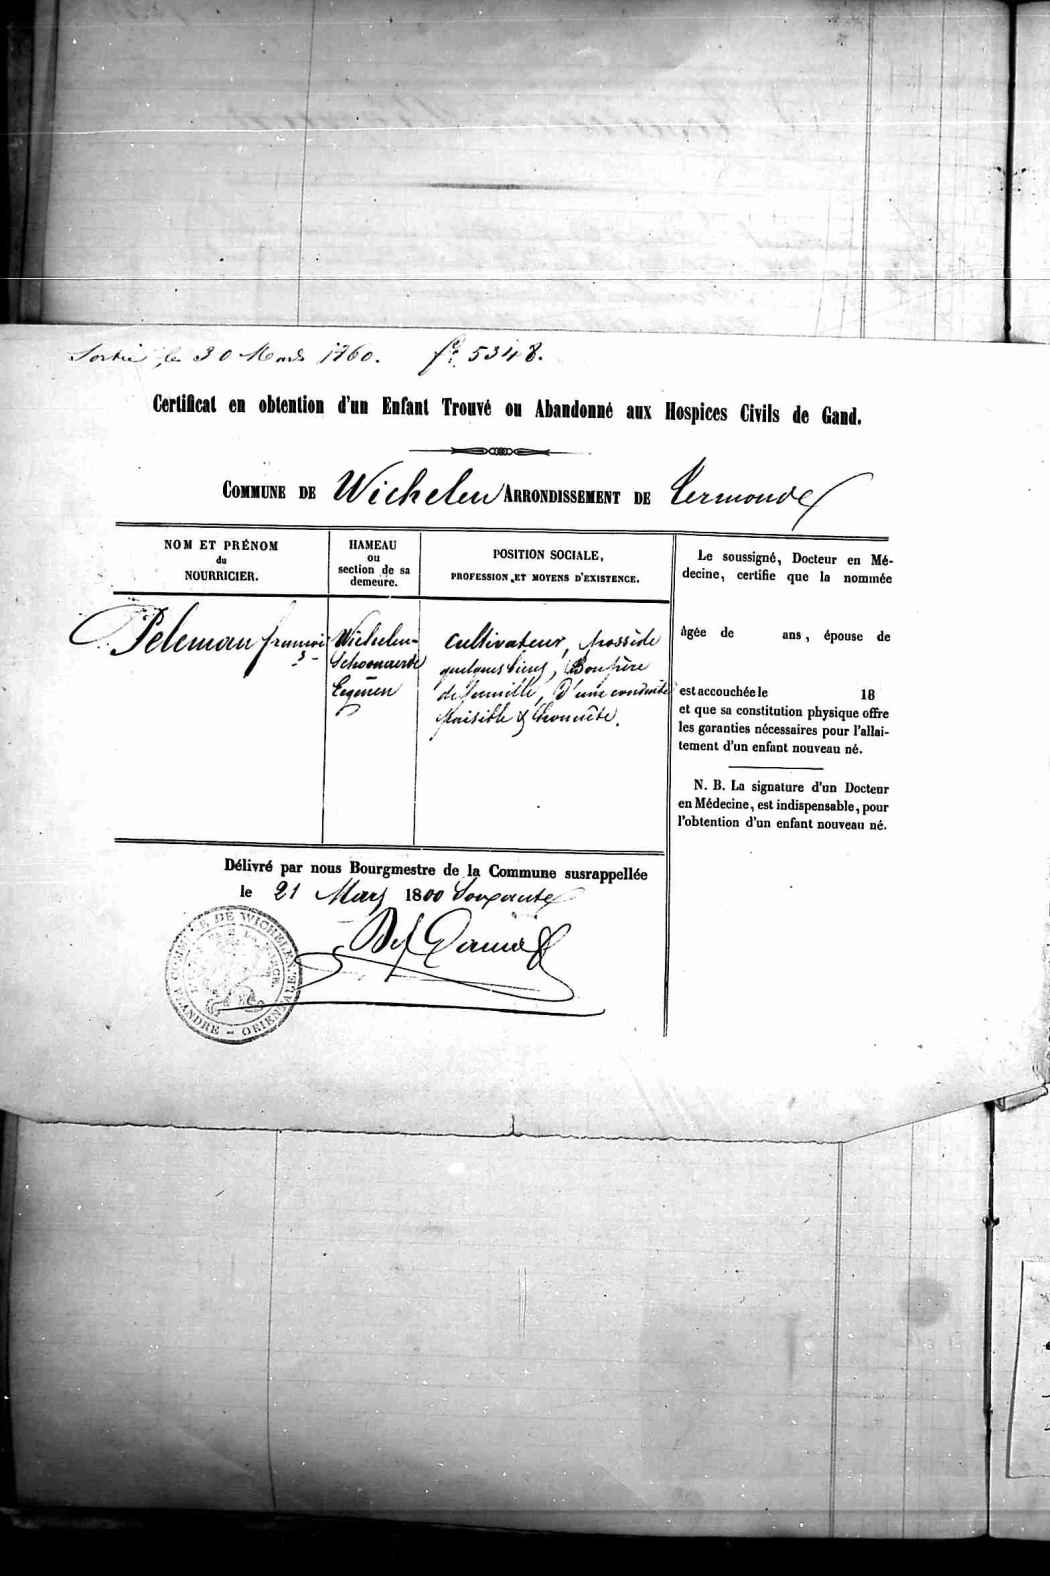 Sortie le 30 Mars 1860. fo. 5348.
Certificat en obtention d'un Enfant Trouvé ou Abandonné aux Hospices Civils de Gand.
COMMUNE DE Wichelen ARRONDISSEMENT DE Termonde
NOM ET PRÉNOM
du
NOURRICIER.
HAMEAU
ou
section de sa
demeure.
POSITION SOCIALE,
PROFESSION, ET MOYENS D'EXISTENCE.
Peleman françois
Wichelen-
Schoonaerde
Eegenen
Cultivateur, possède
quelques biens, Bon père
de famille, D'une conduite
Paisible & honnête.
Le soussigné, Docteur en Mé-
decine, certifie que la nommée
âgée de ans, épouse de
est accouchée le 18
et que sa constitution physique offre
les garanties nécessaires pour l'allai-
tement d'un enfant nouveau né.
N. B. La signature d'un Docteur
en Médecine, est indispensable, pour
l'obtention d'un enfant nouveau né.
Délivré par nous Bourgmestre de la Commune susrappellée
le 21 Mars 1800 Soixante
COMMUNE DE WICHELEN
FLANDRE - ORIENTALE